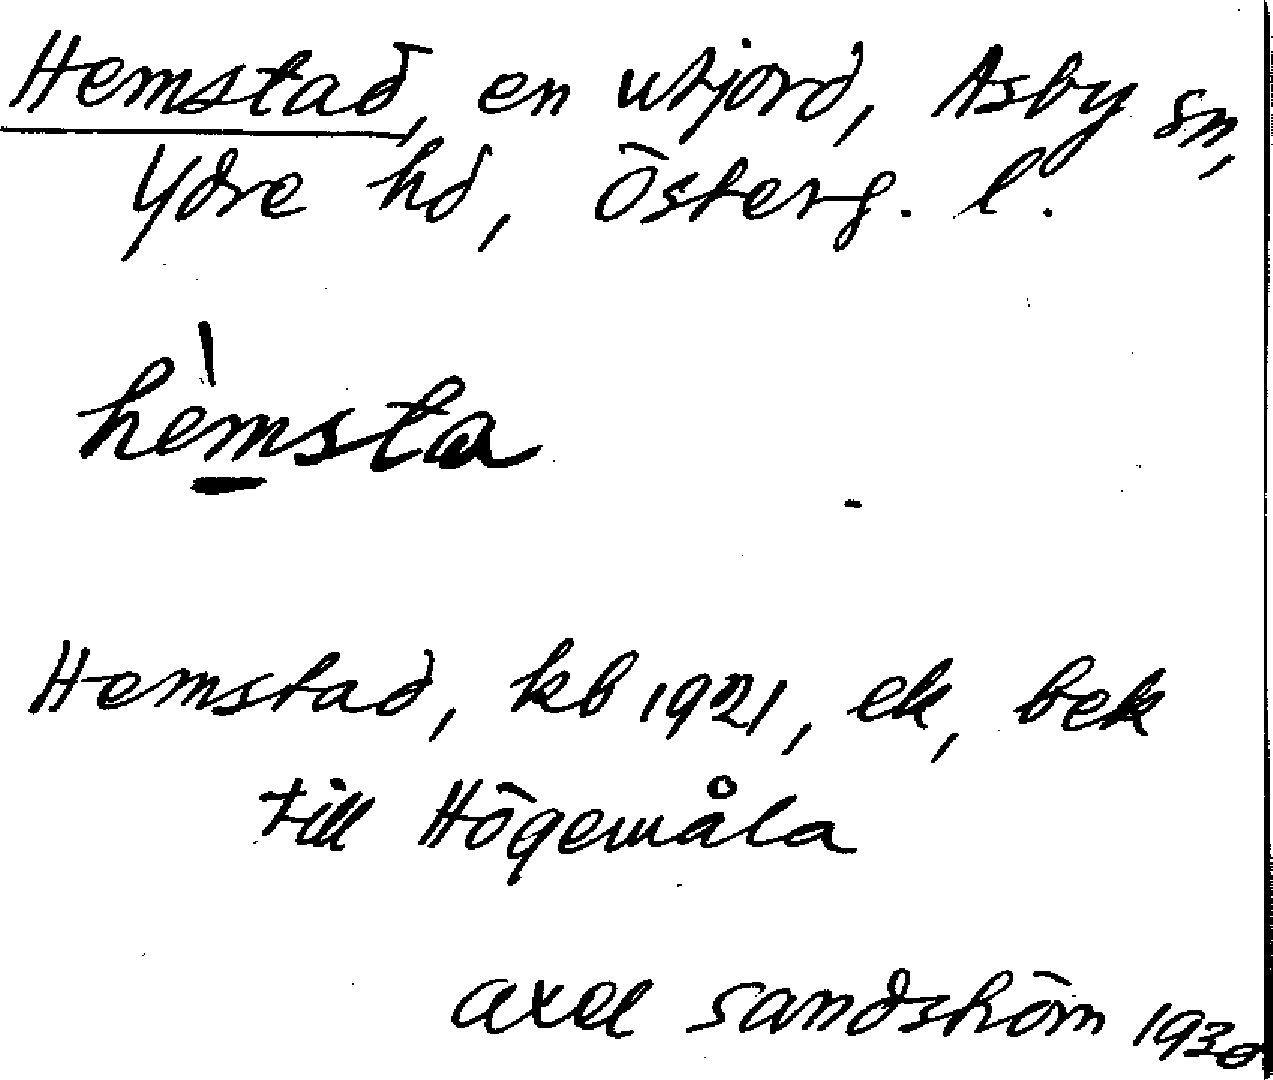 Hemstad, en utjord, Asby sn,
Ydre hd, Österg. l.
hèmsta
Hemstad, kb 1921, ek, bek
till Högemåla
Axel Sandström 1930